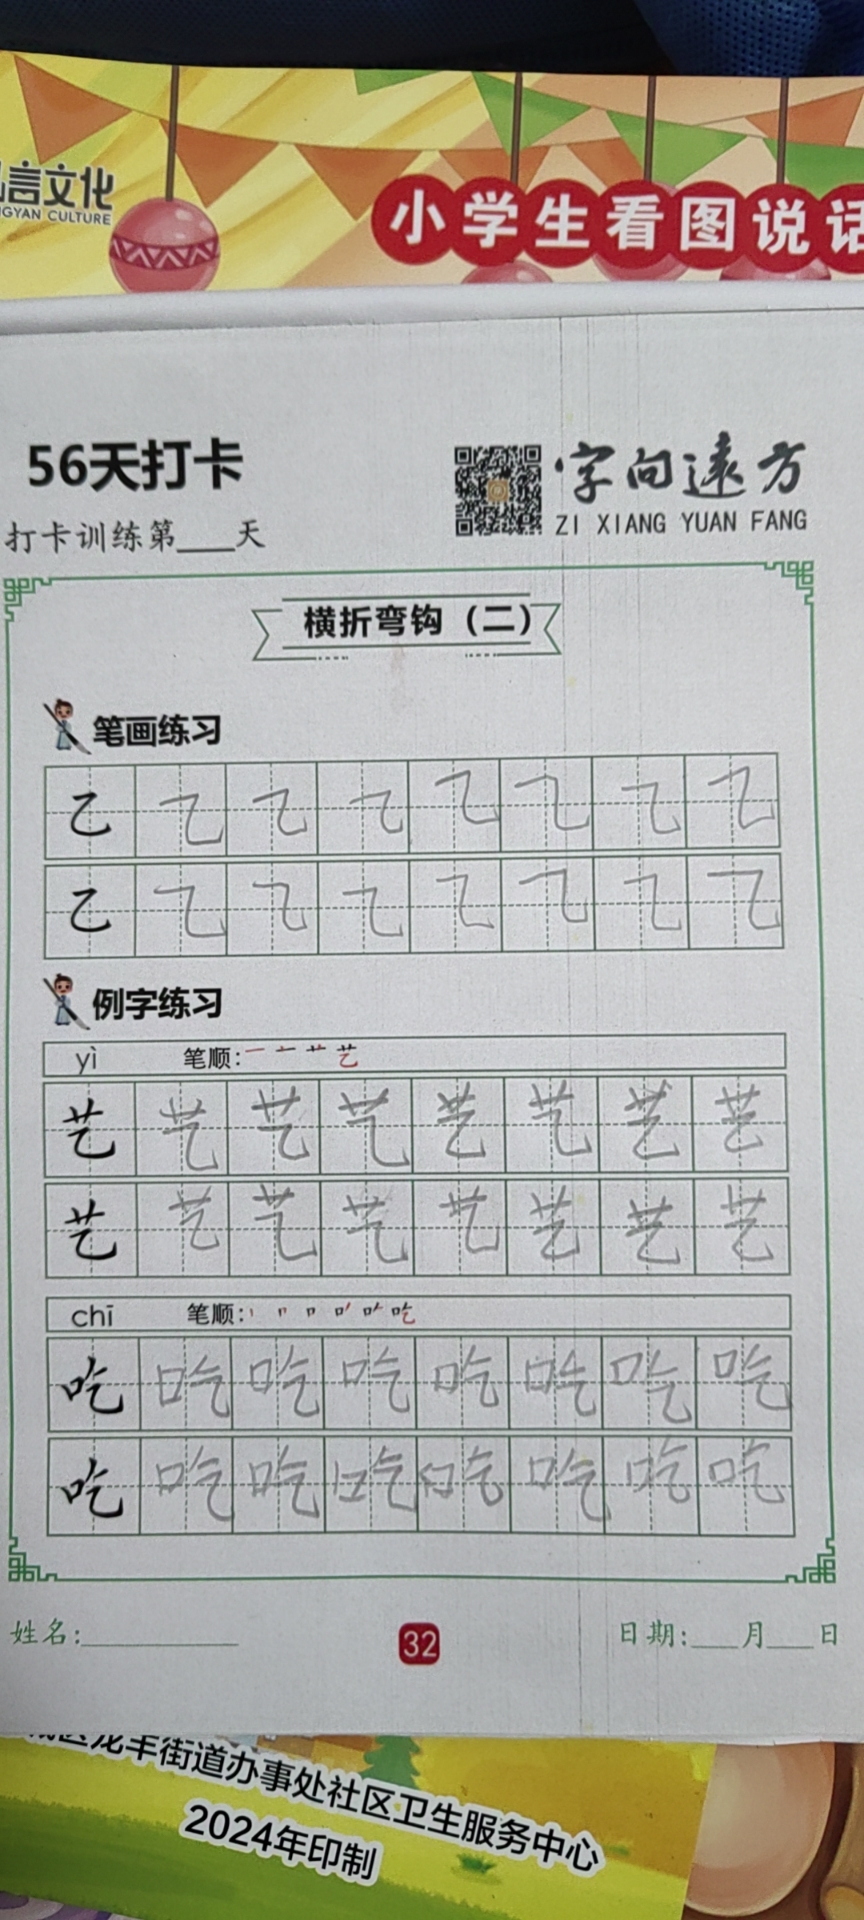 言文化
NGYAN CULTURE
小学生看图说话
56天打卡
字向远方
打卡训练第___天
ZI XIANG YUAN FANG
横折弯钩（二）
笔画练习
乙 乙 乙 乙 乙 乙 乙 乙
乙 乙 乙 乙 乙 乙 乙 乙
例字练习
yì 笔顺:一 艹 艺
艺 艺 艺 艺 艺 艺 艺 艺
艺 艺 艺 艺 艺 艺 艺 艺
chī 笔顺: 吃
吃 吃 吃 吃 吃 吃 吃 吃
吃 吃 吃 吃 吃 吃 吃 吃
姓名:__________
32
日期:___月___日
城区龙羊街道办事处社区卫生服务中心
2024年印制